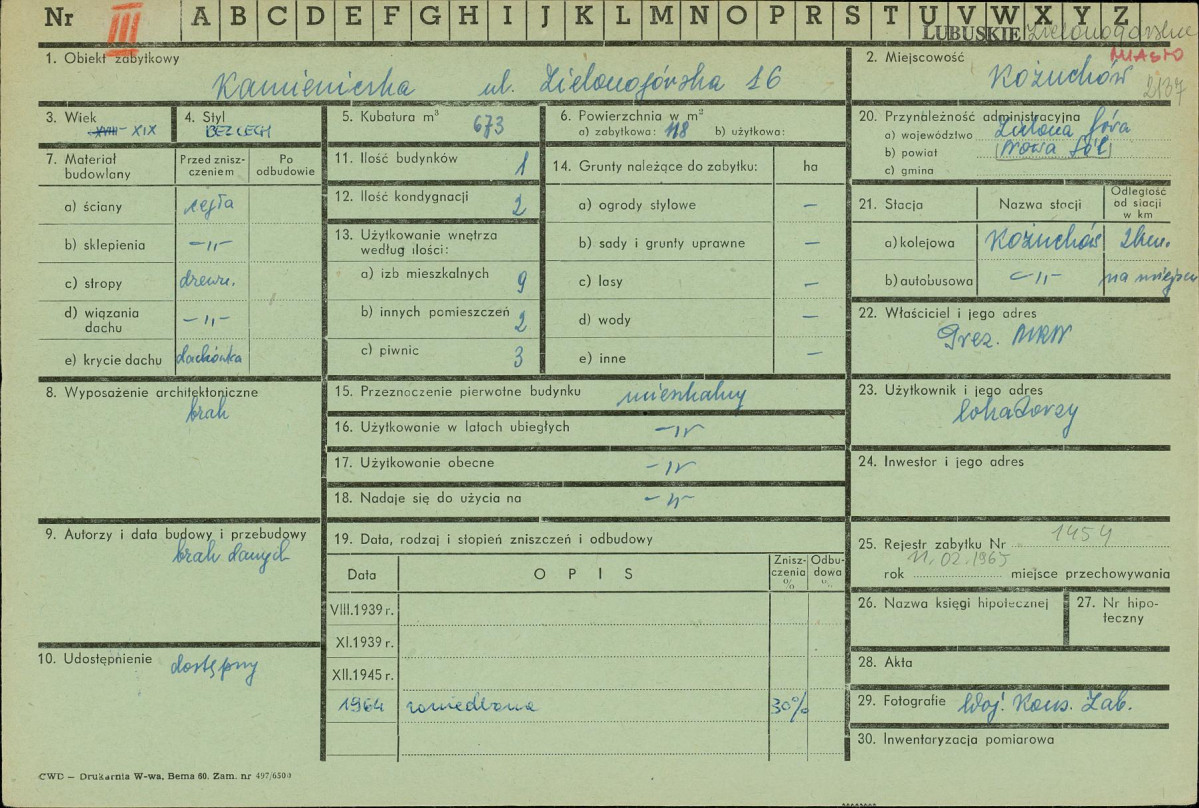 Nr III A B C D E F G H I J K L M N O P R S T U V W X Y Z
LUBUSKIE Zielonogórskie
1. Obiekt zabytkowy
Kamieniczka ul. Zielonogórska 16
2. Miejscowość MIASTO
Kożuchów 2137
3. Wiek
XVIII - XIX
4. Styl
BEZ CECH
5. Kubatura m³ 673
6. Powierzchnia w m²
a) zabytkowa: 118 b) użytkowa:
20. Przynależność administracyjna
a) województwo Zielona Góra
b) powiat (Nowa Sól)
c) gmina
7. Materiał budowlany
Przed zniszczeniem
Po odbudowie
a) ściany cegła
b) sklepienia -„-
c) stropy drewn.
d) wiązania dachu -„-
e) krycie dachu dachówka
11. Ilość budynków 1
12. Ilość kondygnacji 2
13. Użytkowanie wnętrza według ilości:
a) izb mieszkalnych 9
b) innych pomieszczeń 2
c) piwnic 3
14. Grunty należące do zabytku: ha
a) ogrody stylowe —
b) sady i grunty uprawne —
c) lasy —
d) wody —
e) inne —
21. Stacja Nazwa stacji Odległość od stacji w km
a) kolejowa Kożuchów 2km.
b) autobusowa -„- na miejscu
22. Właściciel i jego adres
Prez. MRN
8. Wyposażenie architektoniczne
brak
15. Przeznaczenie pierwotne budynku mieszkalny
16. Użytkowanie w latach ubiegłych -„-
17. Użytkowanie obecne -„-
18. Nadaje się do użycia na -„-
23. Użytkownik i jego adres
lokatorzy
24. Inwestor i jego adres
9. Autorzy i data budowy i przebudowy
brak danych
19. Data, rodzaj i stopień zniszczeń i odbudowy
Data OPIS Zniszczenia % Odbudowa %
VIII.1939 r.
XI.1939 r.
XII.1945 r.
1964 zaniedbana 30%
25. Rejestr zabytku Nr 1454
11.02.1965
rok miejsce przechowywania
26. Nazwa księgi hipotecznej
27. Nr hipoteczny
10. Udostępnienie dostępny
28. Akta
29. Fotografie Woj. Kons. Zab.
30. Inwentaryzacja pomiarowa
CWD — Drukarnia W-wa, Bema 60. Zam. nr 497/6500